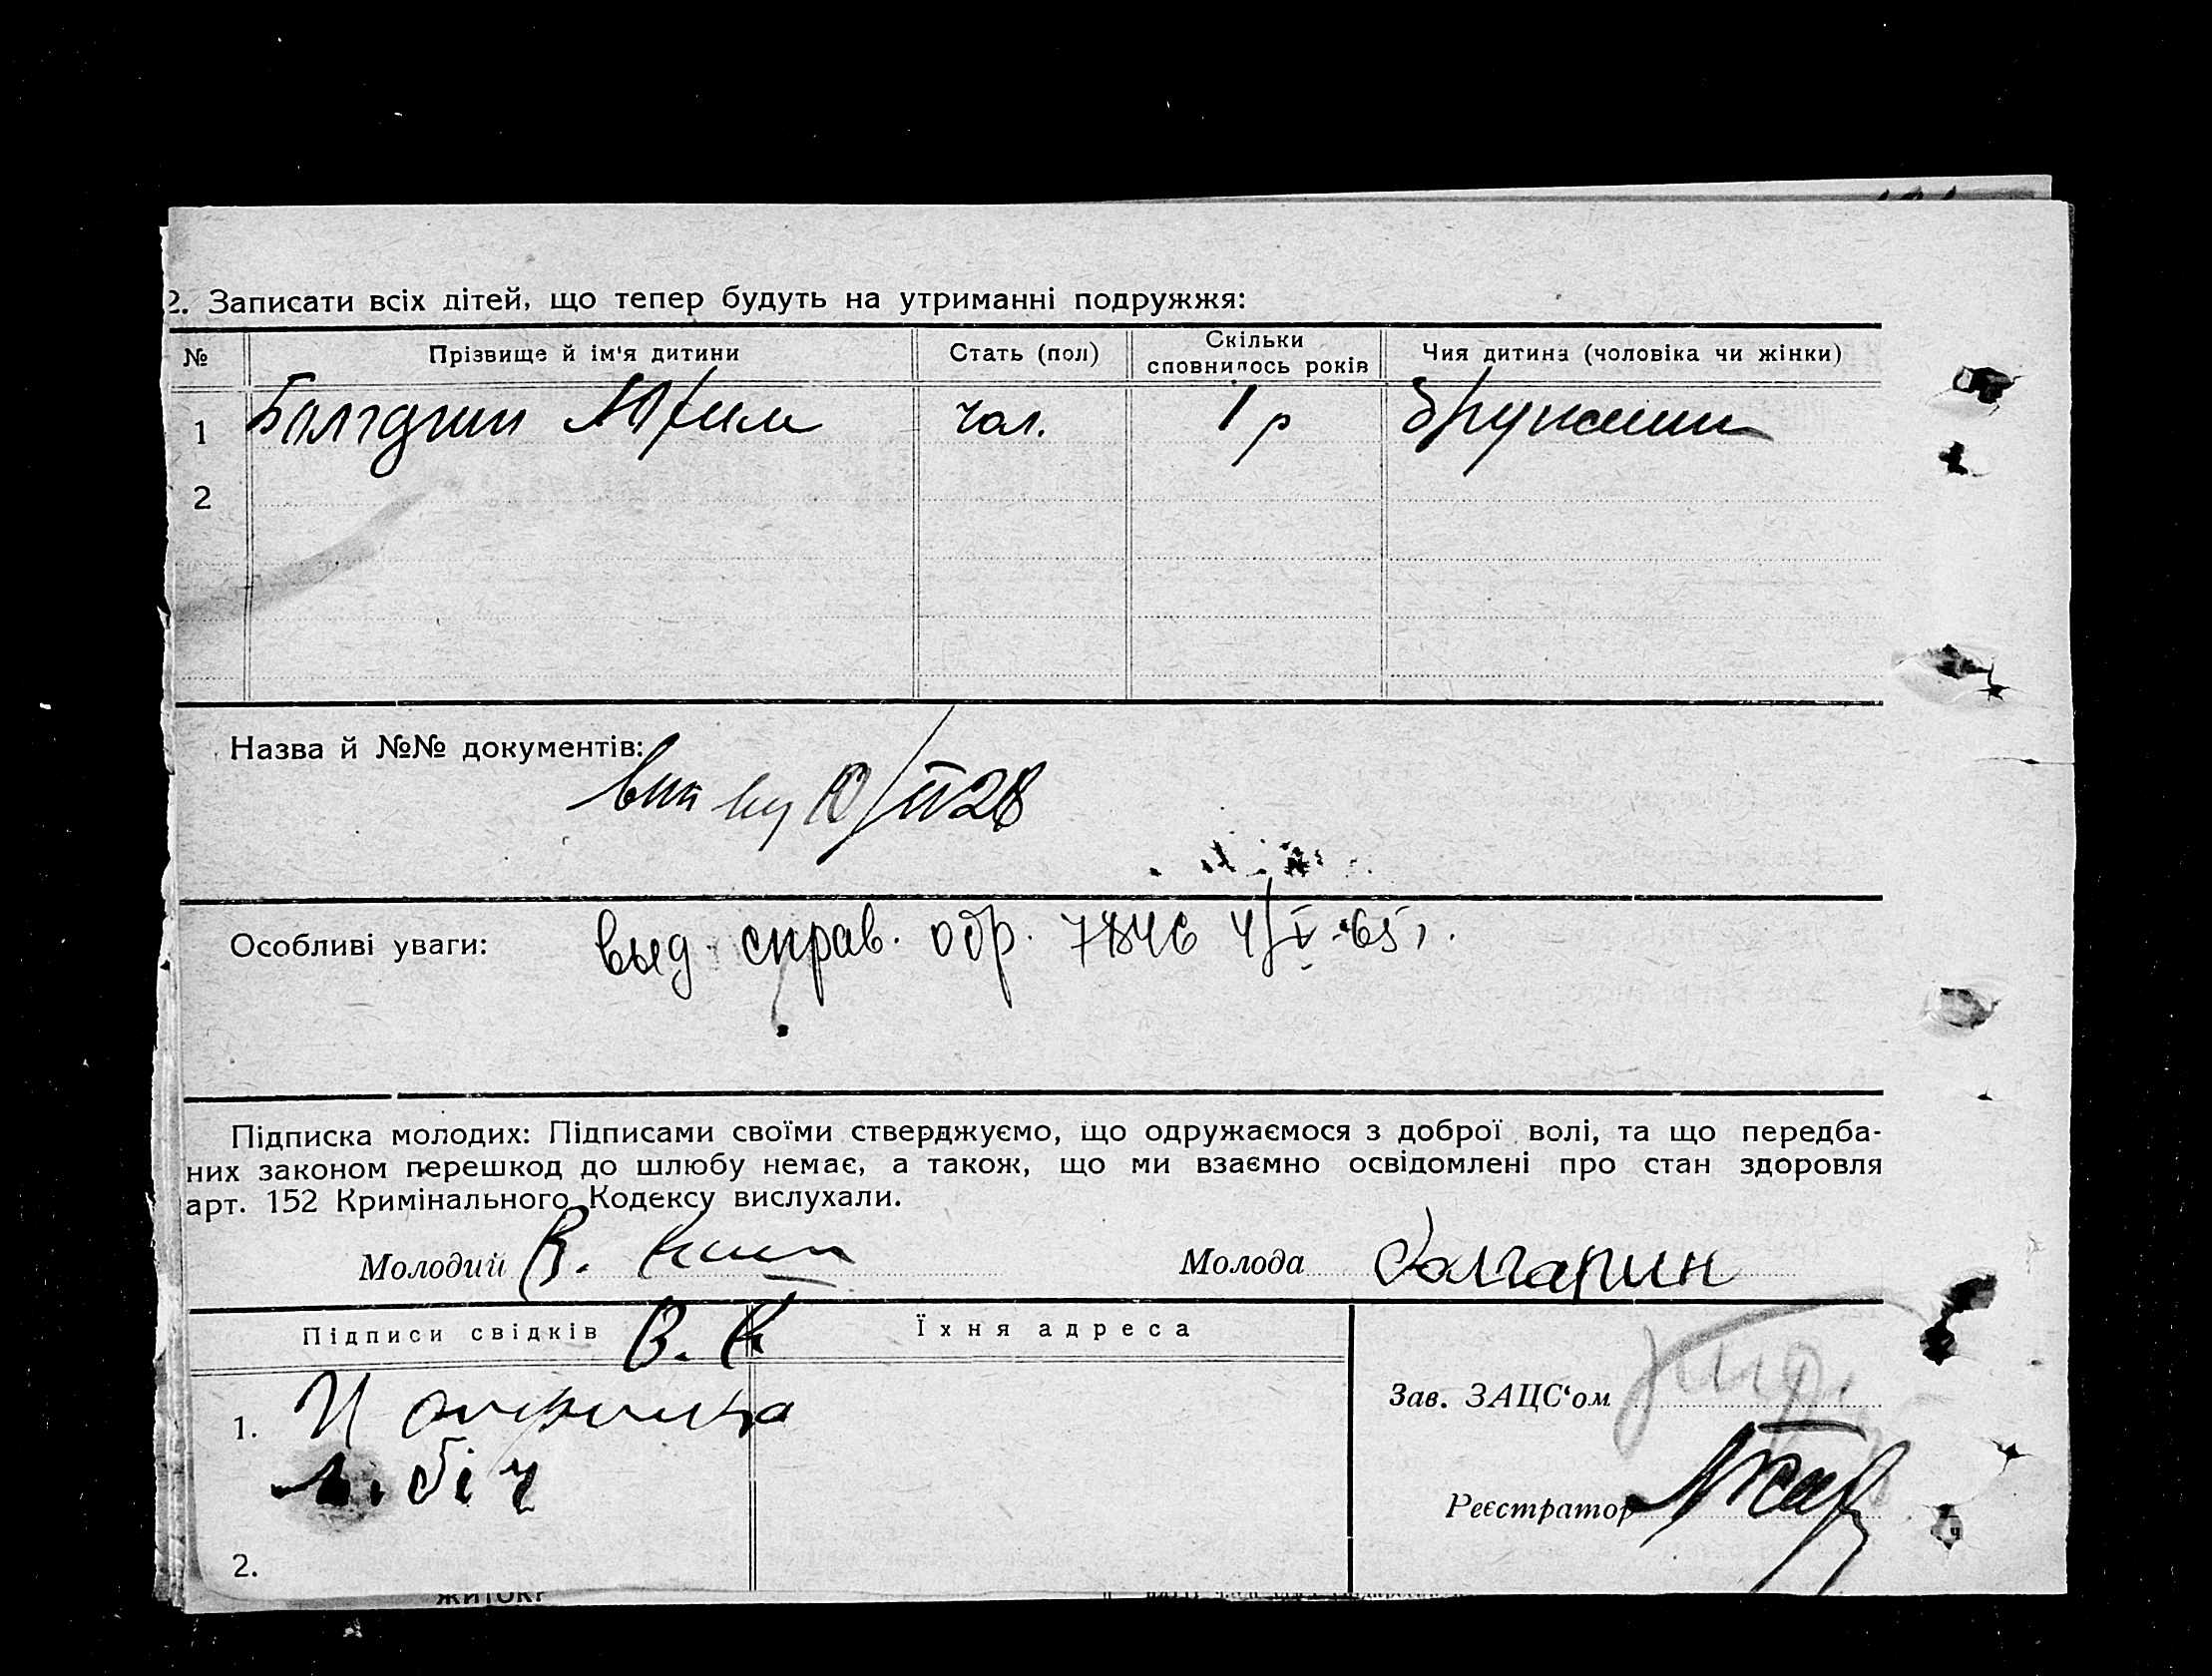 2. Записати всіх дітей, що тепер будуть на утриманні подружжя:
№ Прізвище й ім'я дитини Стать (пол) Скільки сповнилось років Чия дитина (чоловіка чи жінки)
1 чол. 1 р
2
Назва й №№ документів:
Особливі уваги: выд. справ. обр. 7846 4/V-65 г.
Підписка молодих: Підписами своїми стверджуємо, що одружаємося з доброї волі, та що передба-
них законом перешкод до шлюбу немає, а також, що ми взаємно освідомлені про стан здоровля
арт. 152 Кримінального Кодексу вислухали.
Молодий В. Молода Болгарин
Підписи свідків В. К Їхня адреса
1.
2.
Зав. ЗАЦС'ом
Реєстратор